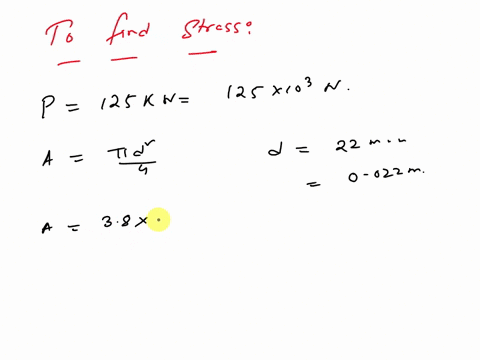 To find Stress:
P = 125 KN = 125 × 10³ N.
A = πd²/4
d = 22 mm
= 0.022 m.
A = 3.8 ×